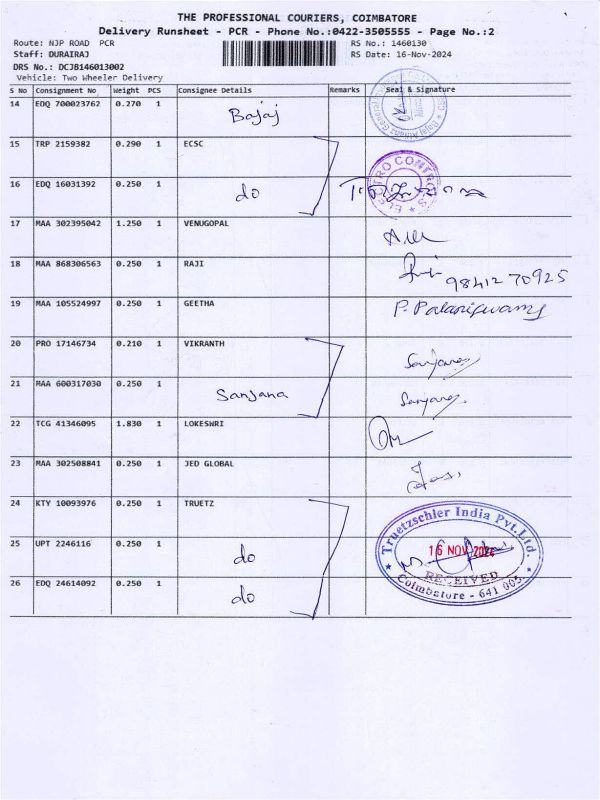 THE PROFESSIONAL COURIERS, COIMBATORE
Delivery Runsheet - PCR - Phone No.:0422-3505555 - Page No.:2
Route: NJP ROAD PCR RS No.: 1460130
Staff: DURAIRAJ RS Date: 16-Nov-2024
DRS No.: DCJB146013002
Vehicle: Two Wheeler Delivery
S No Consignment No Weight PCS Consignee Details Remarks Seal & Signature
14 EDQ 700023762 0.270 1 Bajaj
15 TRP 2159382 0.290 1 ECSC
16 EDQ 16031392 0.250 1 do
ELECTRO CONTROLS
17 MAA 302395042 1.250 1 VENUGOPAL
18 MAA 868306563 0.250 1 RAJI 9841270925
19 MAA 105524997 0.250 1 GEETHA P. Palaniswamy
20 PRO 17146734 0.210 1 VIKRANTH Sanjana
21 MAA 600317030 0.250 1 Sanjana Sanjana
22 TCG 41346095 1.830 1 LOKESWRI
23 MAA 302508841 0.250 1 JED GLOBAL
24 KTY 10093976 0.250 1 TRUETZ
25 UPT 2246116 0.250 1 do
26 EDQ 24614092 0.250 1 do
Truetzschler India Pvt. Ltd.
16 NOV 2024
RECEIVED
Coimbatore - 641 005.